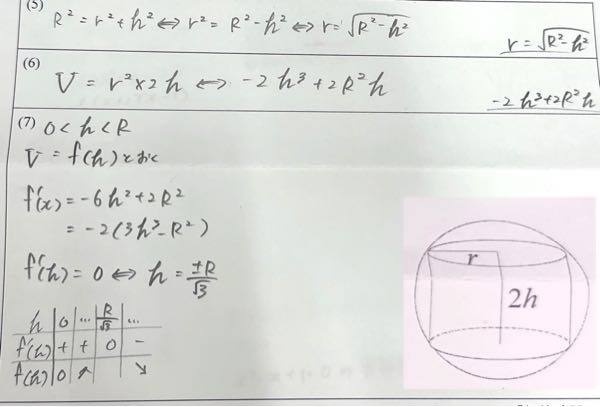 (5) R² = r² + h² ⇔ r² = R² - h² ⇔ r = √(R² - h²)
r = √(R² - h²)
(6) V = r² × 2h ⇔ -2h³ + 2R²h
-2h³ + 2R²h
(7) 0 < h < R
V = f(h) とおく
f'(x) = -6h² + 2R²
= -2(3h³ - R²)
f'(h) = 0 ⇔ h = ±R/√3
h | 0 | … | R/√3 | …
f'(h) | + | + | 0 | -
f(h) | 0 | ↗ | | ↘
r
2h